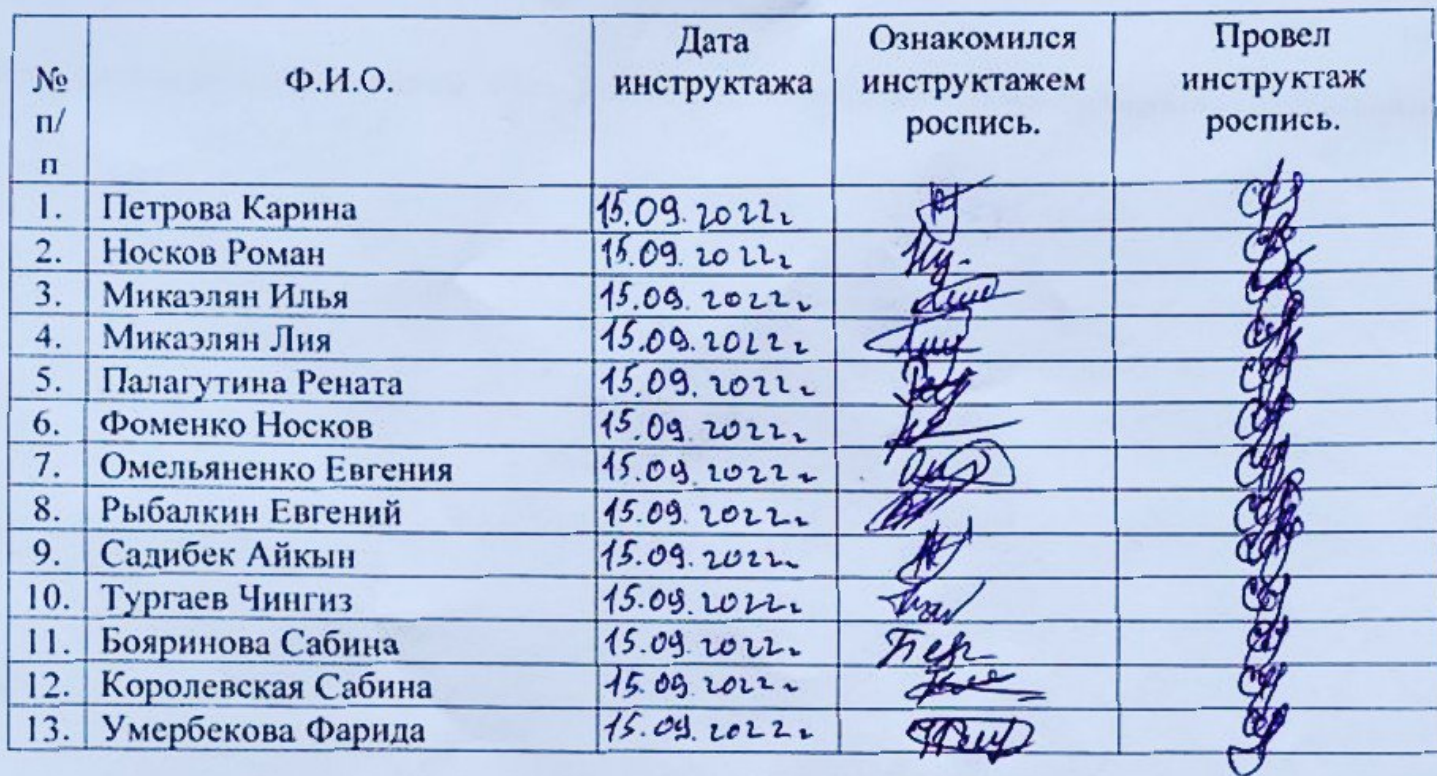 № п/п Ф.И.О. Дата инструктажа Ознакомился инструктажем роспись. Провел инструктаж роспись.
1. Петрова Карина 15.09.2022г
2. Носков Роман 15.09.2022г
3. Микаэлян Илья 15.09.2022г
4. Микаэлян Лия 15.09.2022г
5. Палагутина Рената 15.09.2022г
6. Фоменко Носков 15.09.2022г
7. Омельяненко Евгения 15.09.2022г
8. Рыбалкин Евгений 15.09.2022г
9. Садибек Айкын 15.09.2022г
10. Тургаев Чингиз 15.09.2022г
11. Бояринова Сабина 15.09.2022г
12. Королевская Сабина 15.09.2022г
13. Умербекова Фарида 15.09.2022г